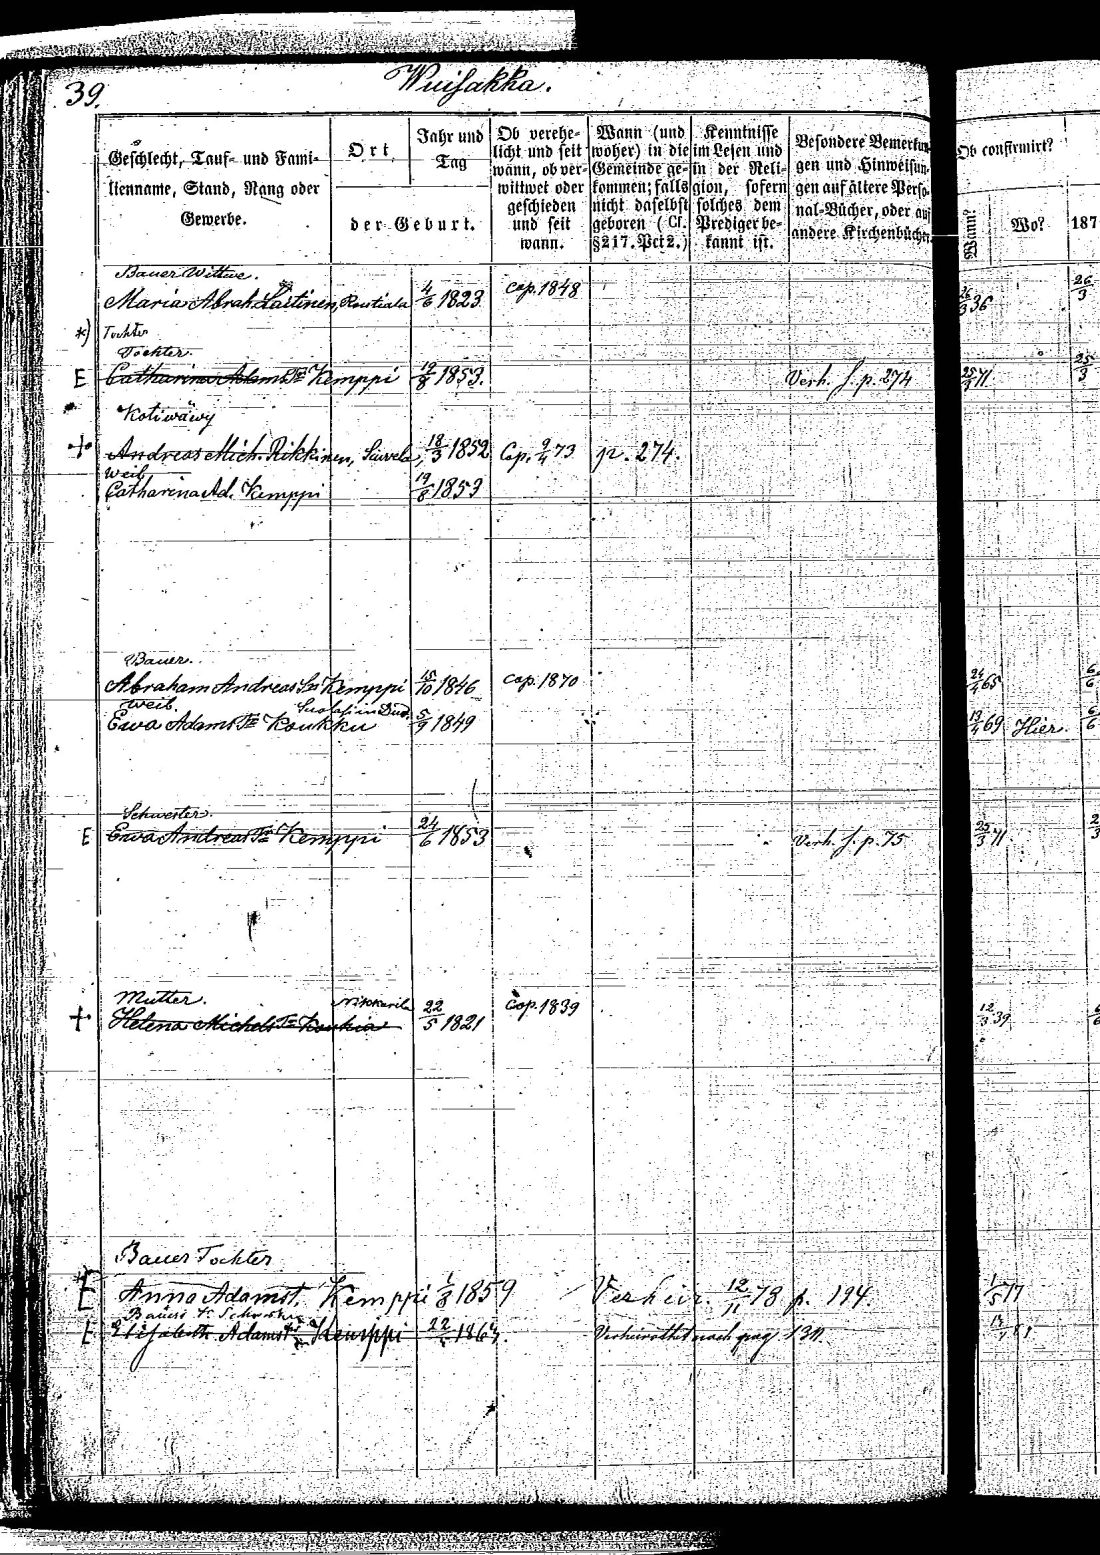 39.
Wuisakka.
Geschlecht, Tauf- und Fami-
lienname, Stand, Rang oder
Gewerbe.
Ort
Jahr und
Tag
der Geburt.
Ob verehe-
licht und seit
wann, ob ver-
wittwet oder
geschieden
und seit
wann.
Wann (und
woher) in die
Gemeinde ge-
kommen; falls
nicht daselbst
geboren (Cf.
§ 217. Pct 2.)
Kenntnisse
im Lesen und
in der Reli-
gion, sofern
solches dem
Prediger be-
kannt ist.
Besondere Bemerkun-
gen und Hinweisun-
gen auf ältere Perso-
nal-Bücher, oder auf
andere Kirchenbücher.
Ob confirmirt?
Wann?
Wo?
187
Bauer Wittwe.
Maria Abrah. Lattinen, 4/6 1823 Cop. 1848 26/3 36 26/3
*) Tochter
Tochter.
E Catharina Adams Tr Kemppi 19/8 1853. Verh. s. p. 274 25/3 71 25/3
Kotiwäwy
+ Andreas Mich. Rikkinen, 18/3 1852 Cop. 9/4 73 p. 274.
Weib
Catharina Ad. Kemppi 19/8 1853
Bauer.
Abraham Andreas Sn Kemppi 15/10 1846 Cop. 1870 24/4 65 6/6
Weib.
Ewa Adams Tr Koukku 5/9 1849 13/4 69 Hier. 6/6
Schwester.
E Ewa Andreas Tr Kemppi 24/6 1853 Verh. s. p. 75 25/3 71
Mutter.
+ Helena Michels Tr Koukia 22/5 1821 Cop. 1839 12/3 39
Bauer Tochter
E Anna Adamst. Kemppi 1/8 1859 Verheir. 12/11 78 p. 194. 1/5 77
Elisabeth Adamst. Kemppi Verheirathet nach pag